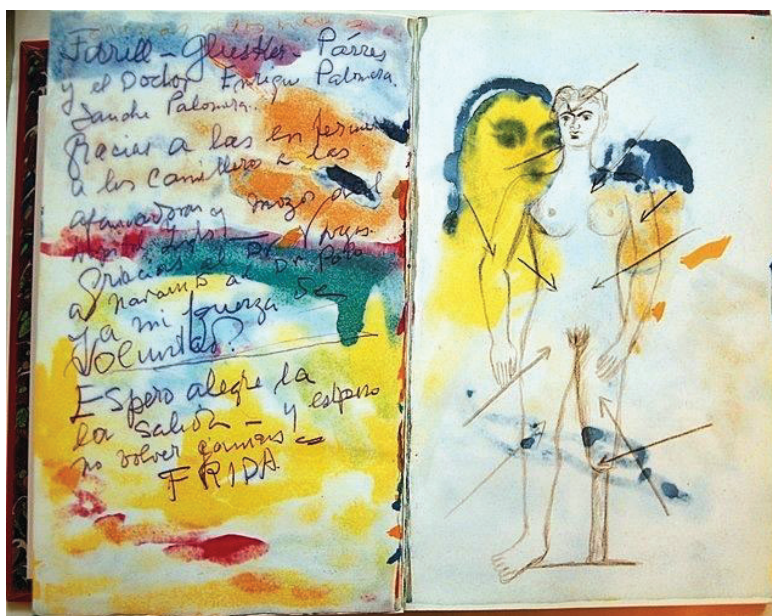 Farill - Glusker - Párres
y el Doctor Enrique Palomera
Sanche Palomera.
Gracias a las enfermeras
a los camilleros a las
afanadoras y mozos del
Gracias al Dr. Vargas
a Navarro al Dr. Polo
y a mi fuerza de
Voluntad.
Espero alegre la
la salida - y espero
no volver jamás -
FRIDA